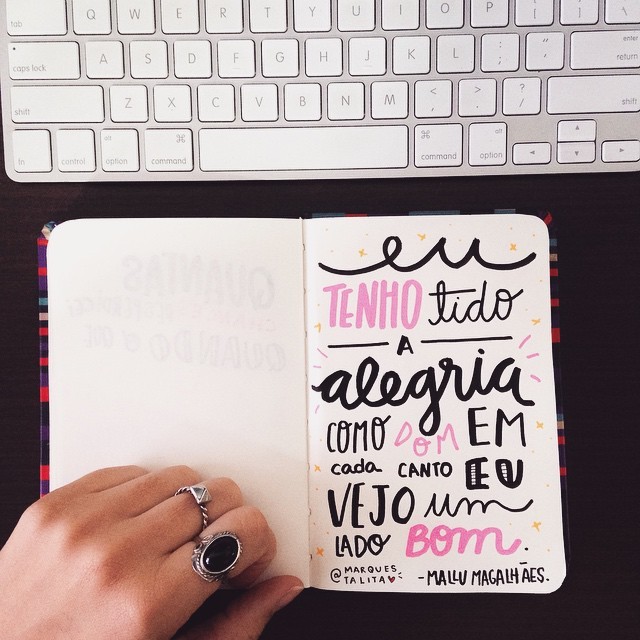 tab Q W E R T Y U I O P { [ } ]
caps lock A S D F G H J K L : ; " ' enter return
shift Z X C V B N M < , > . ? / shift
fn control alt option ⌘ command ⌘ command alt option ◄ ▲ ▼ ►
eu
TENHO tido
A
alegria
COMO DOM EM
cada CANTO EU
VEJO um
LADO BOM.
@MARQUES
TALITA♥
-MALLU MAGALHÃES.
QUANTAS
QUANDO O QUE